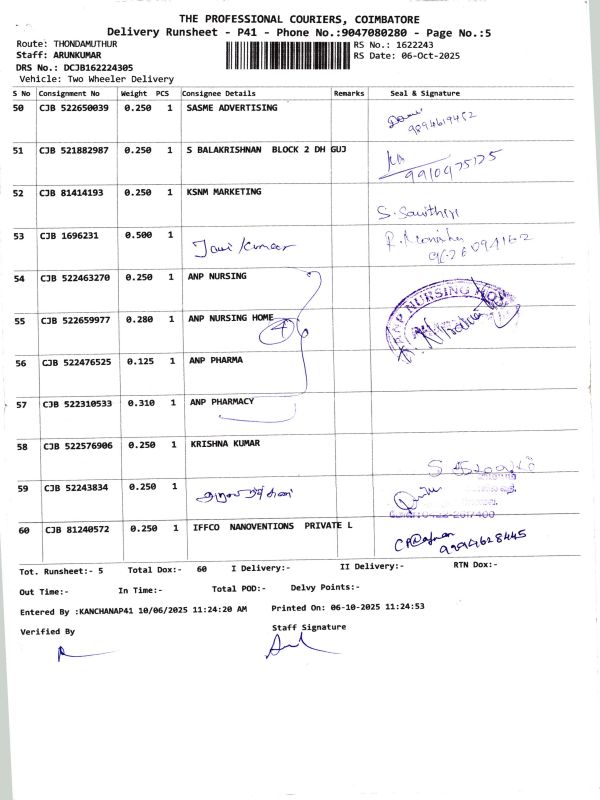 THE PROFESSIONAL COURIERS, COIMBATORE
Delivery Runsheet - P41 - Phone No.:9047080280 - Page No.:5
Route: THONDAMUTHUR
RS No.: 1622243
Staff: ARUNKUMAR
RS Date: 06-Oct-2025
DRS No.: DCJB162224305
Vehicle: Two Wheeler Delivery
S No Consignment No Weight PCS Consignee Details Remarks Seal & Signature
50 CJB 522650039 0.250 1 SASME ADVERTISING
9894619452
51 CJB 521882987 0.250 1 S BALAKRISHNAN BLOCK 2 DH GUJ
9910975175
52 CJB 81414193 0.250 1 KSNM MARKETING
S. Sawithiri
53 CJB 1696231 0.500 1
54 CJB 522463270 0.250 1 ANP NURSING
ANP NURSING HO
55 CJB 522659977 0.280 1 ANP NURSING HOME
4
56 CJB 522476525 0.125 1 ANP PHARMA
57 CJB 522310533 0.310 1 ANP PHARMACY
58 CJB 522576906 0.250 1 KRISHNA KUMAR
59 CJB 52243834 0.250 1
60 CJB 81240572 0.250 1 IFFCO NANOVENTIONS PRIVATE L
9994628445
Tot. Runsheet:- 5 Total Dox:- 60 I Delivery:- II Delivery:- RTN Dox:-
Out Time:- In Time:- Total POD:- Delvy Points:-
Entered By :KANCHANAP41 10/06/2025 11:24:20 AM Printed On: 06-10-2025 11:24:53
Verified By Staff Signature